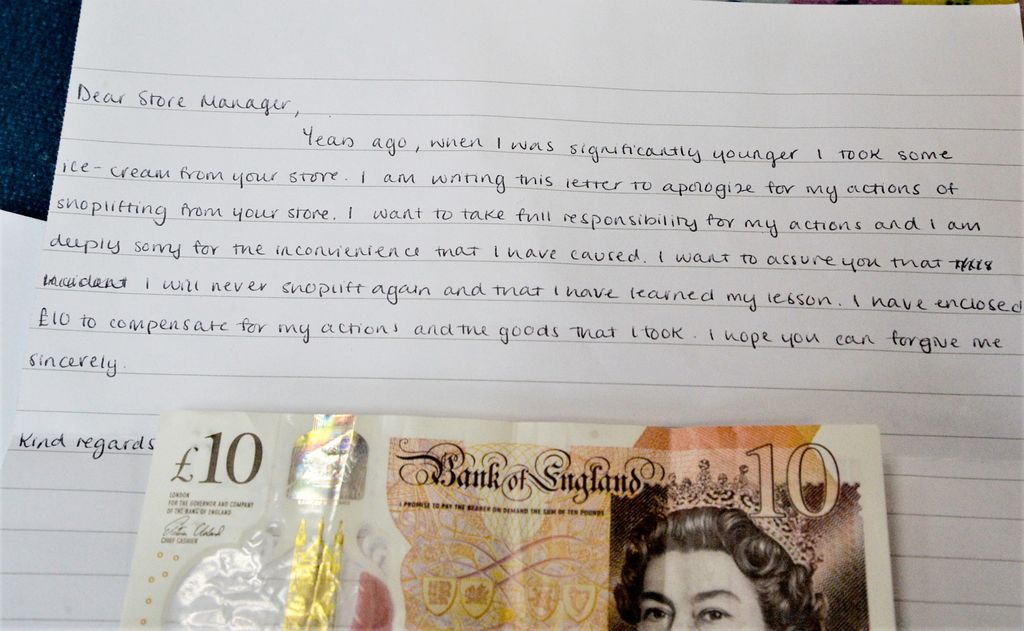 Dear Store Manager,
Years ago, when I was significantly younger I took some
ice-cream from your store. I am writing this letter to apologize for my actions of
shoplifting from your store. I want to take full responsibility for my actions and I am
deeply sorry for the inconvienience that I have caused. I want to assure you that
incident I will never shoplift again and that I have learned my lesson. I have enclosed
£10 to compensate for my actions and the goods that I took. I hope you can forgive me
sincerely.
Kind regards
£10
Bank of England
10
I PROMISE TO PAY THE BEARER ON DEMAND THE SUM OF TEN POUNDS
LONDON
FOR THE GOVERNOR AND COMPANY
OF THE BANK OF ENGLAND
CHIEF CASHIER